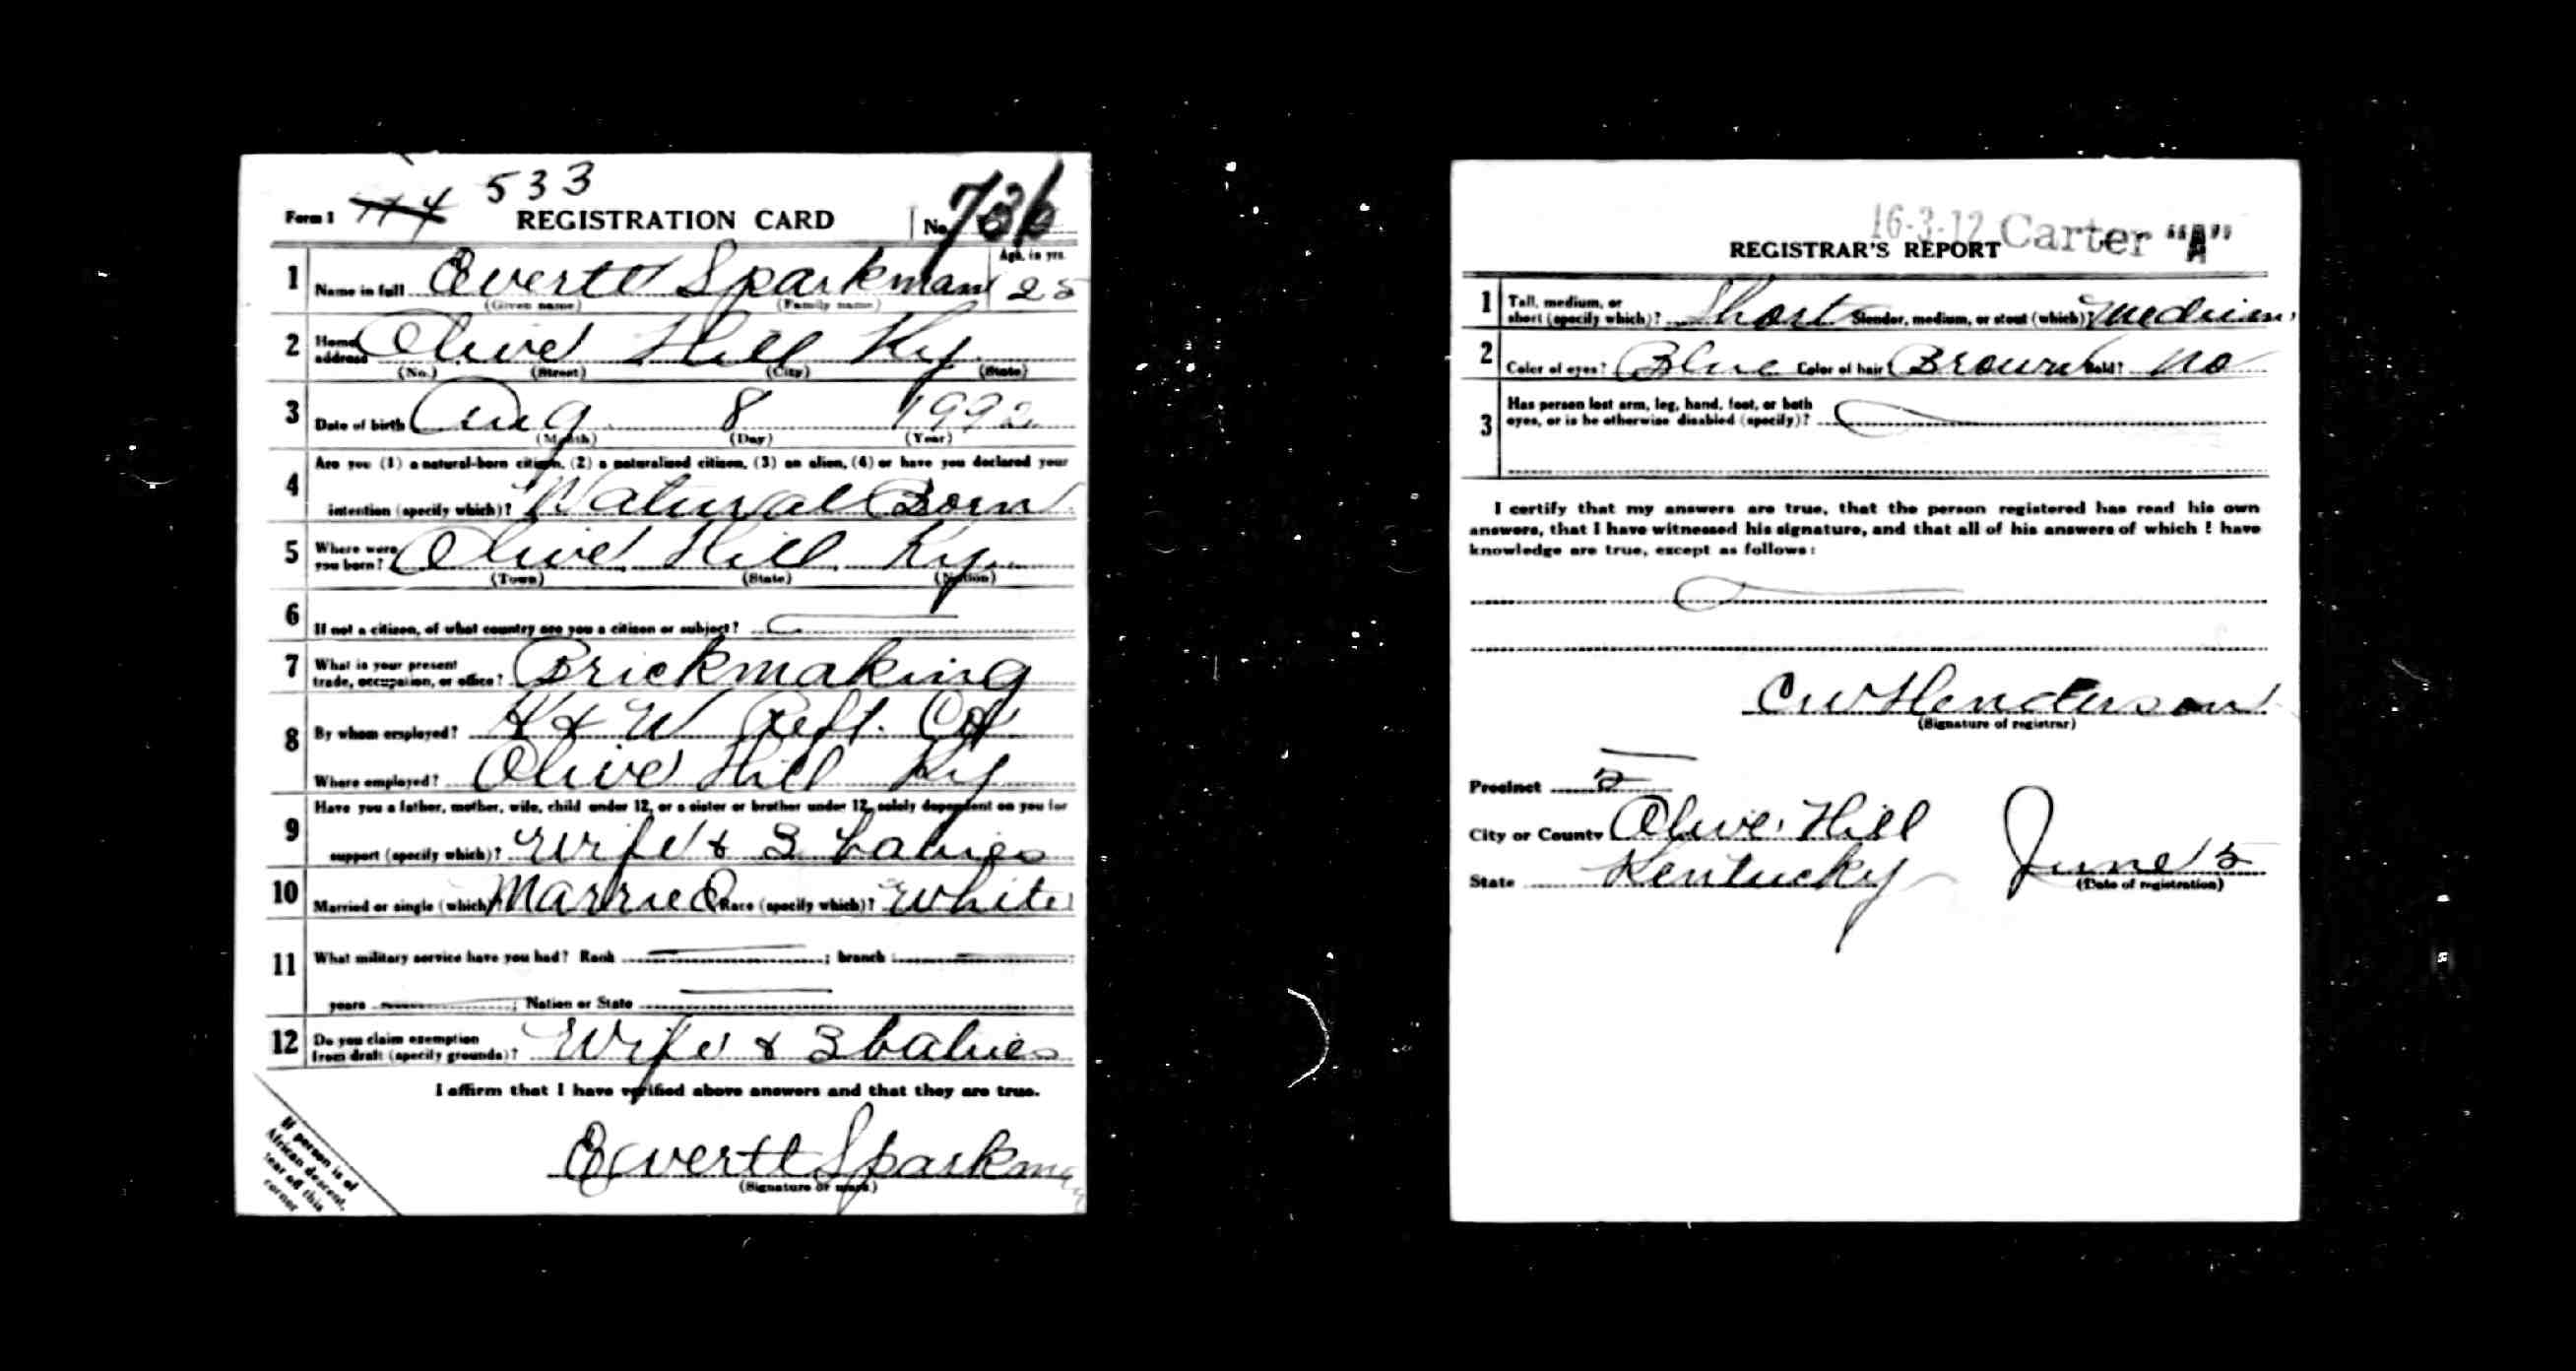 533
Form 1 REGISTRATION CARD No. 736
1 Name in full Evertt Sparkman Age, in yrs. 25
(Given name) (Family name)
2 Home address Olive Hill Ky.
(No.) (Street) (City) (State)
3 Date of birth Aug 8
(Month) (Day) (Year)
4 Are you (1) a natural-born citizen, (2) a naturalized citizen, (3) an alien, (4) or have you declared your
intention (specify which)? Natural Born
5 Where were you born? Olive Hill Ky.
(Town) (State) (Nation)
6 If not a citizen, of what country are you a citizen or subject?
7 What is your present trade, occupation, or office? Brickmaking
8 By whom employed? & W Reft. Co
Where employed? Olive Hill Ky
9 Have you a father, mother, wife, child under 12, or a sister or brother under 12, solely dependent on you for
support (specify which)? Wife & 3 babies
10 Married or single (which)? Married Race (specify which)? White
11 What military service have you had? Rank ; branch
years ; Nation or State
12 Do you claim exemption from draft (specify grounds)? Wife & 3 babies
I affirm that I have verified above answers and that they are true.
Evertt Sparkman
(Signature or mark)
If person is of
African descent,
tear off this
corner
16-3-12 Carter "A"
REGISTRAR'S REPORT
1 Tall, medium, or short (specify which)? Short Slender, medium, or stout (which)? Medium
2 Color of eyes? Blue Color of hair? Brown Bald? No
3 Has person lost arm, leg, hand, foot, or both
eyes, or is he otherwise disabled (specify)?
I certify that my answers are true, that the person registered has read his own
answers, that I have witnessed his signature, and that all of his answers of which I have
knowledge are true, except as follows:
CW Henderson
(Signature of registrar)
Precinct 2
City or County Olive Hill
State Kentucky June 5
(Date of registration)